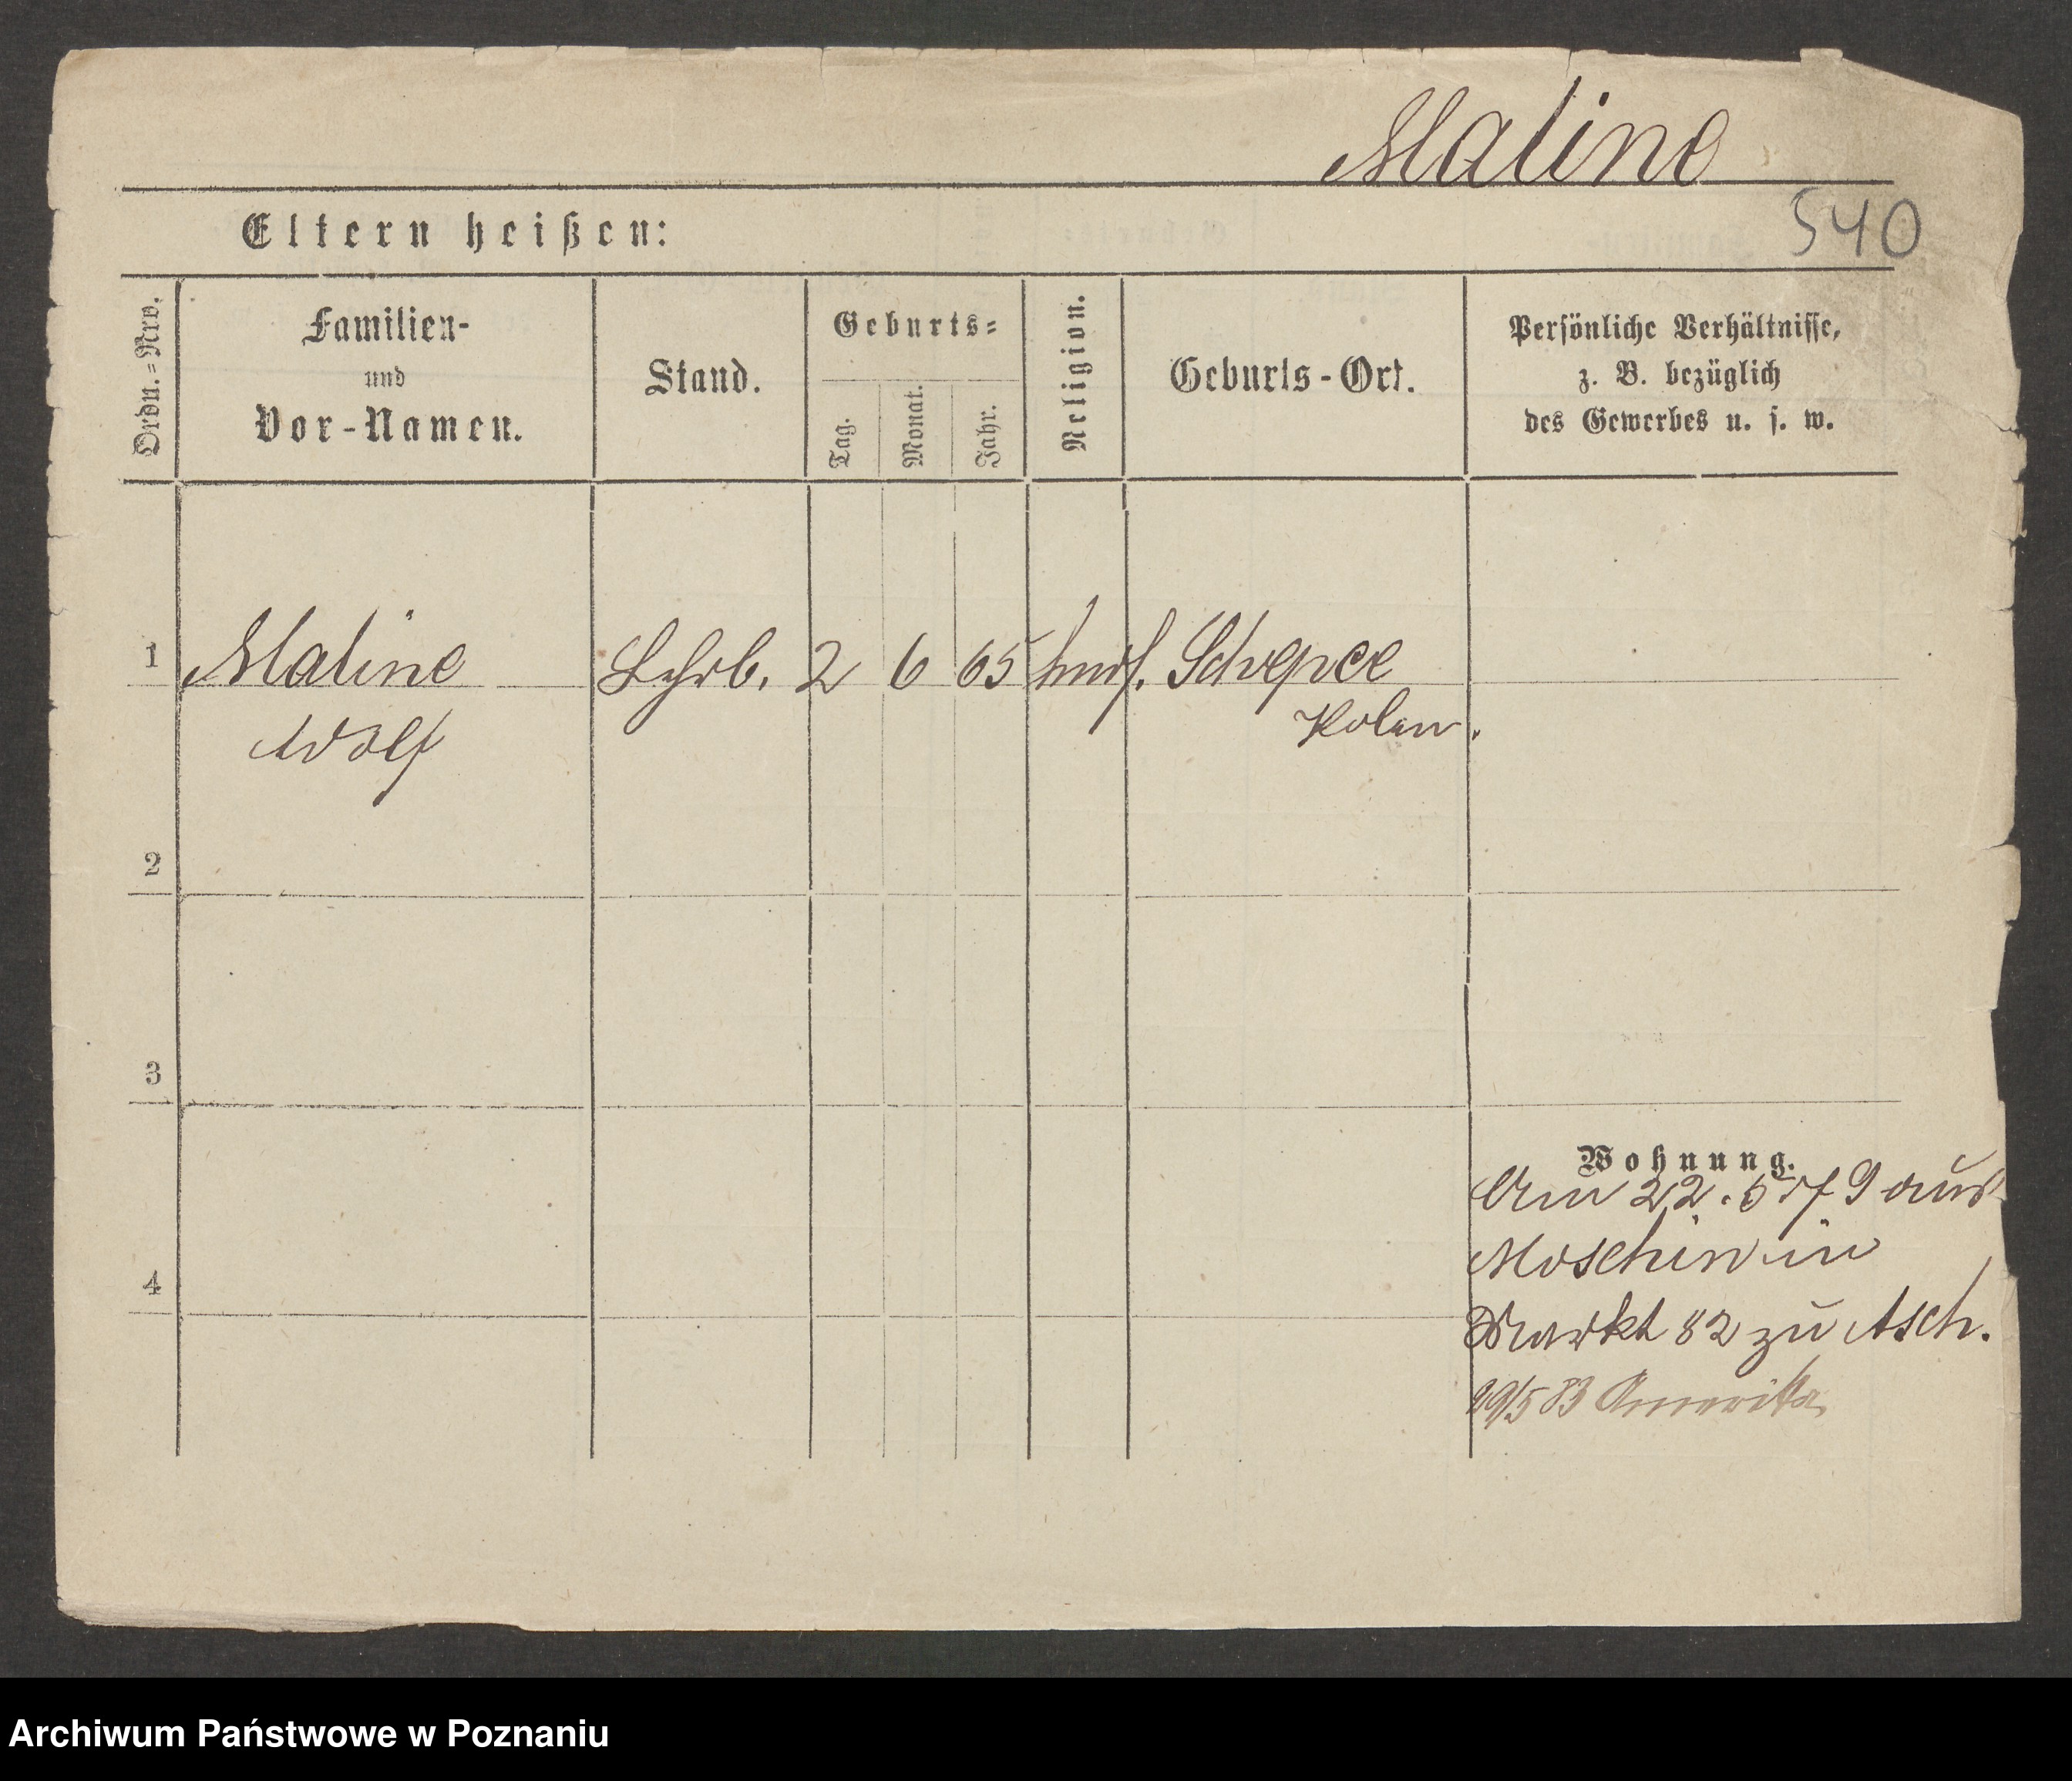 Maline
540
Eltern heißen:
Ordn.=Nro.
Familien-
und
Vor-Namen.
Stand.
Geburts=
Tag.
Monat.
Jahr.
Religion.
Geburts-Ort.
Persönliche Verhältnisse,
z. B. bezüglich
des Gewerbes u. s. w.
1 Maline Lehrb. 2 6 65
Wolf Polen.
2
3
Wohnung.
Am 22. 5 79 aus
Moschin in
4
Markt 82 zu Asch.
29/5 83 Amerika
Archiwum Państwowe w Poznaniu